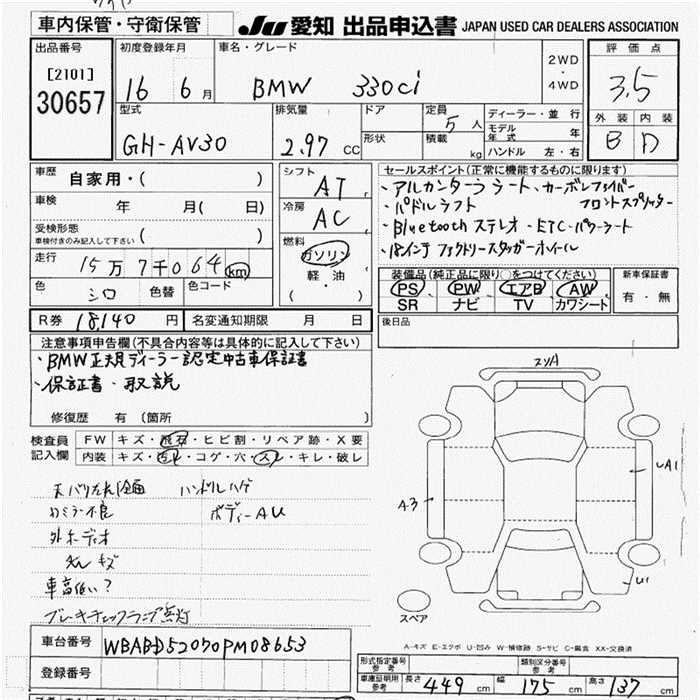 車内保管・守衛保管
JU 愛知 出品申込書 JAPAN USED CAR DEALERS ASSOCIATION
出品番号
[2101]
30657
初度登録年月
16 6 月
車名・グレード
BMW 330ci
2WD
・
4WD
評価点
3.5
外装 内装
B D
型式
GH-AV30
排気量
2.97 CC
ドア
形状
定員
5 人
積載
kg
ディーラー・並行
モデル年式 年
ハンドル 左・右
車歴
自家用・( )
車検
年 月( 日)
受検形態
車検付きのみ記入して下さい ( )
走行
15万7千064 km
色
シロ
色替
色コード
シフト
AT
冷房
AC
燃料
ガソリン
軽・油
( )
セールスポイント(正常に機能するものに限ります)
・アルカンターラシート、カーボンファイバー
フロントスプリッター
・パドルシフト
・Bluetoothステレオ・ETC・パワーシート
・18インチファクトリースタッガーホイール
装備品(純正品に限り○をつけてください)
PS PW エアB AW
SR ナビ TV カワシート
新車保証書
有・無
R券 18,140 円
名変通知期限 月 日
後日品
注意事項申告欄(不具合内容等は具体的に記入して下さい)
・BMW正規ディーラー認定中古車保証書
・保証書・取説
修復歴 有(箇所 )
検査員記入欄
FW キズ・飛石・ヒビ割・リペア跡・X要
内装 キズ・汚れ・コゲ・穴・スレ・キレ・破レ
ハンドルハゲ
ボディーAU
外オーディオ
車高低い?
ブレーキチェックランプ点灯
A3
UA1
U1
スペア
A-キズ E-エクボ U-凹み W-補修跡 S-サビ C-腐食 XX-交換済
車台番号 WBABD52070PM08653
登録番号
形式指定番号 参考
類別区分番号 参考
車庫証明用 参考 長さ 449 cm 幅 175 cm 高さ 137 cm